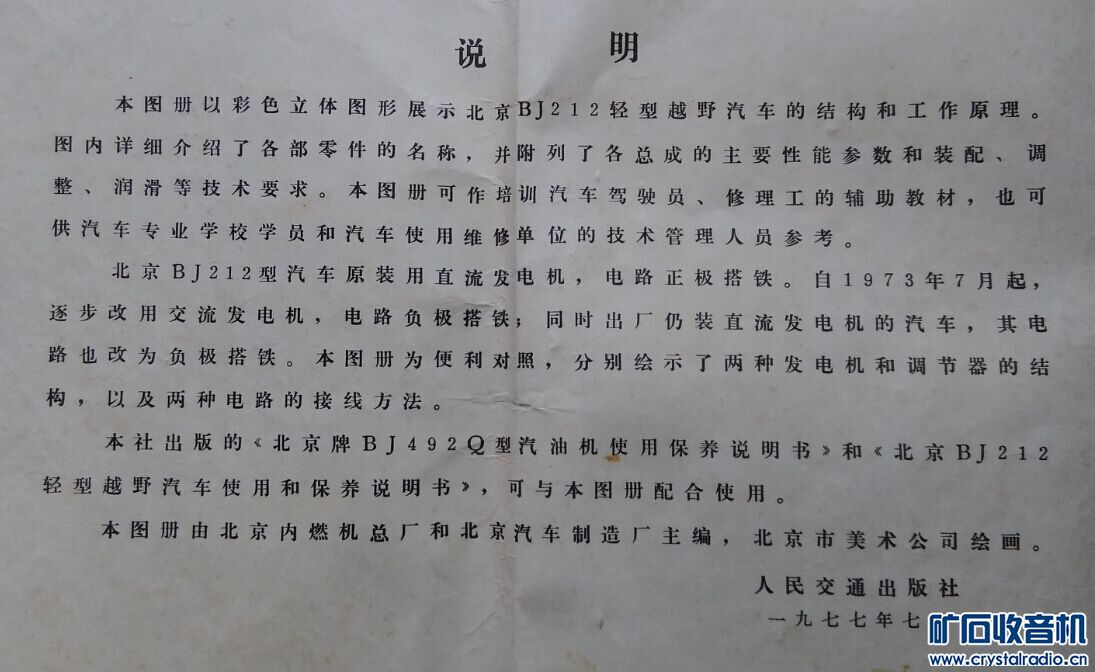 说 明
本图册以彩色立体图形展示北京BJ212轻型越野汽车的结构和工作原理。
图内详细介绍了各部零件的名称，并附列了各总成的主要性能参数和装配、调
整、润滑等技术要求。本图册可作培训汽车驾驶员、修理工的辅助教材，也可
供汽车专业学校学员和汽车使用维修单位的技术管理人员参考。
北京BJ212型汽车原装用直流发电机，电路正极搭铁。自1973年7月起，
逐步改用交流发电机，电路负极搭铁；同时出厂仍装直流发电机的汽车，其电
路也改为负极搭铁。本图册为便利对照，分别绘示了两种发电机和调节器的结
构，以及两种电路的接线方法。
本社出版的《北京牌BJ492Q型汽油机使用保养说明书》和《北京BJ212
轻型越野汽车使用和保养说明书》，可与本图册配合使用。
本图册由北京内燃机总厂和北京汽车制造厂主编，北京市美术公司绘画。
人民交通出版社
一九七七年七
矿石收音机
www.crystalradio.cn